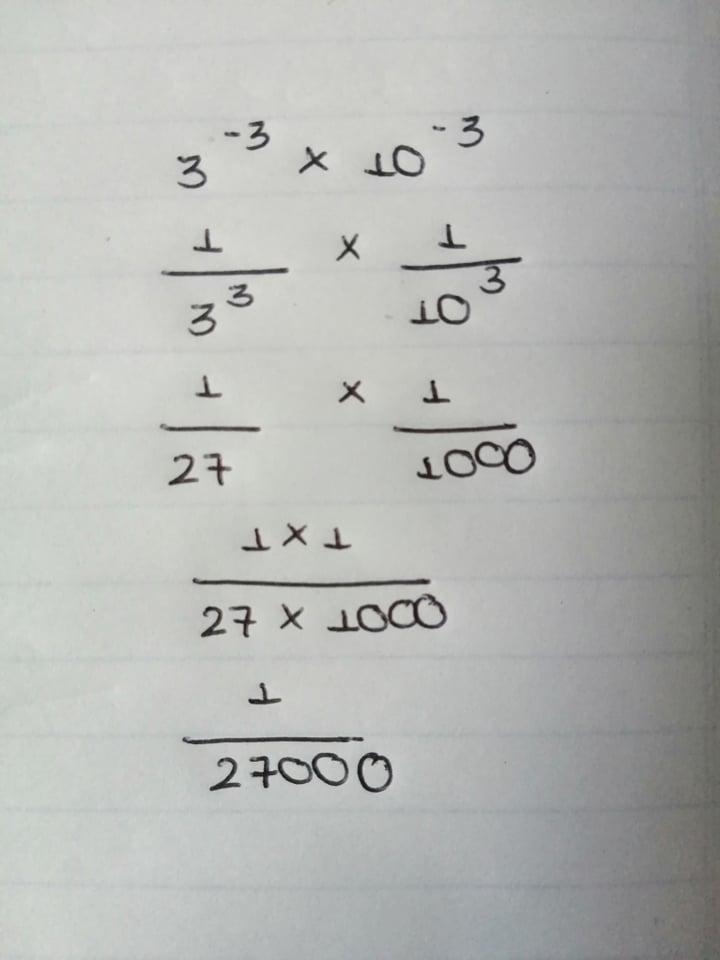 3⁻³ × 10⁻³
1/3³ × 1/10³
1/27 × 1/1000
1 × 1/27 × 1000
1/27000